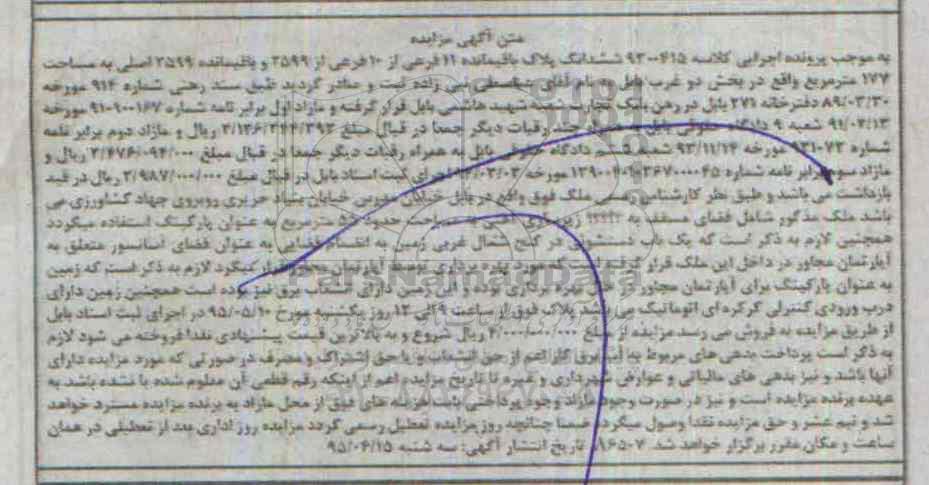 متن آگهی مزایده
به موجب پرونده اجرایی کلاسه ۹۳۰۰۴۱۵ ششدانگ پلاک باقیمانده ۱۲ فرعی از ۱۰ فرعی از ۲۵۹۹ و باقیمانده ۲۵۹۹ اصلی به مساحت
۱۷۷ مترمربع واقع در بخش دو غرب بابل به نام آقای نبی زاده ثبت و صادر گردید طبق سند رهنی شماره ۹۱۴ مورخه
۸۹/۰۳/۳۰ دفترخانه ۲۷۱ بابل در رهن بانک تجارت شعبه شهید هاشمی بابل قرار گرفته و مازاد اول برابر نامه شماره ۹۱۰۹۰۰۱۶۷ مورخه
۹۱/۰۲/۱۳ شعبه ۹ دادگاه حقوقی بابل رقبات دیگر جمعا در قبال مبلغ ۲/۱۳۶/۲۴۴/۳۹۳ ریال و مازاد دوم برابر نامه
شماره ۹۳۱۰۷۳ مورخه ۹۳/۱۱/۱۴ شعبه ششم دادگاه حقوقی بابل به همراه رقبات دیگر جمعا در قبال مبلغ ۲/۴۷۶/۰۹۴/۰۰۰ ریال و
مازاد سوم برابر نامه شماره اجرای ثبت اسناد بابل در قبال مبلغ ۲/۹۸۷/۰۰۰/۰۰۰ ریال در قید
بازداشت می باشد و طبق نظر کارشناس رسمی ملک فوق واقع در بابل خیابان مدرس خیابان بنیاد حریری روبروی جهاد کشاورزی می
باشد ملک مذکور شامل فضای مسقف به مساحت حدود مترمربع به عنوان پارکینگ استفاده میگردد
همچنین لازم به ذکر است که یک باب دستشویی در کنج شمال غربی زمین به انضمام فضایی به عنوان فضای آسانسور متعلق به
آپارتمان مجاور در داخل این ملک قرار گرفته است که مورد بهره برداری توسط آپارتمان مجاور قرار میگیرد لازم به ذکر است که زمین
به عنوان پارکینگ برای آپارتمان مجاور مورد بهره برداری بوده و این زمین دارای انشعاب برق نیز بوده است همچنین زمین دارای
درب ورودی کنترلی کرکره ای اتوماتیک می باشد پلاک فوق از ساعت ۹ الی ۱۲ روز یکشنبه مورخ ۹۵/۰۵/۱۰ در اجرای ثبت اسناد بابل
از طریق مزایده به فروش می رسد مزایده از مبلغ ریال شروع و به بالاترین قیمت پیشنهادی نقدا فروخته می شود لازم
به ذکر است پرداخت بدهی های مربوط به آب برق گاز اعم از حق انشعاب و یا حق اشتراک و مصرف در صورتی که مورد مزایده دارای
آنها باشد و نیز بدهی های مالیاتی و عوارض شهرداری و غیره تا تاریخ مزایده اعم از اینکه رقم قطعی آن معلوم شده یا نشده باشد به
عهده برنده مزایده است و نیز در صورت وجود مازاد وجوه پرداختی بابت هزینه های فوق از محل مازاد به برنده مزایده مسترد خواهد
شد و نیم عشر و حق مزایده نقدا وصول میگردد ضمنا چنانچه روز مزایده تعطیل رسمی گردد مزایده روز اداری بعد از تعطیلی در همان
ساعت و مکان مقرر برگزار خواهد شد. تاریخ انتشار آگهی: سه شنبه ۹۵/۰۴/۱۵
ParsNamadData